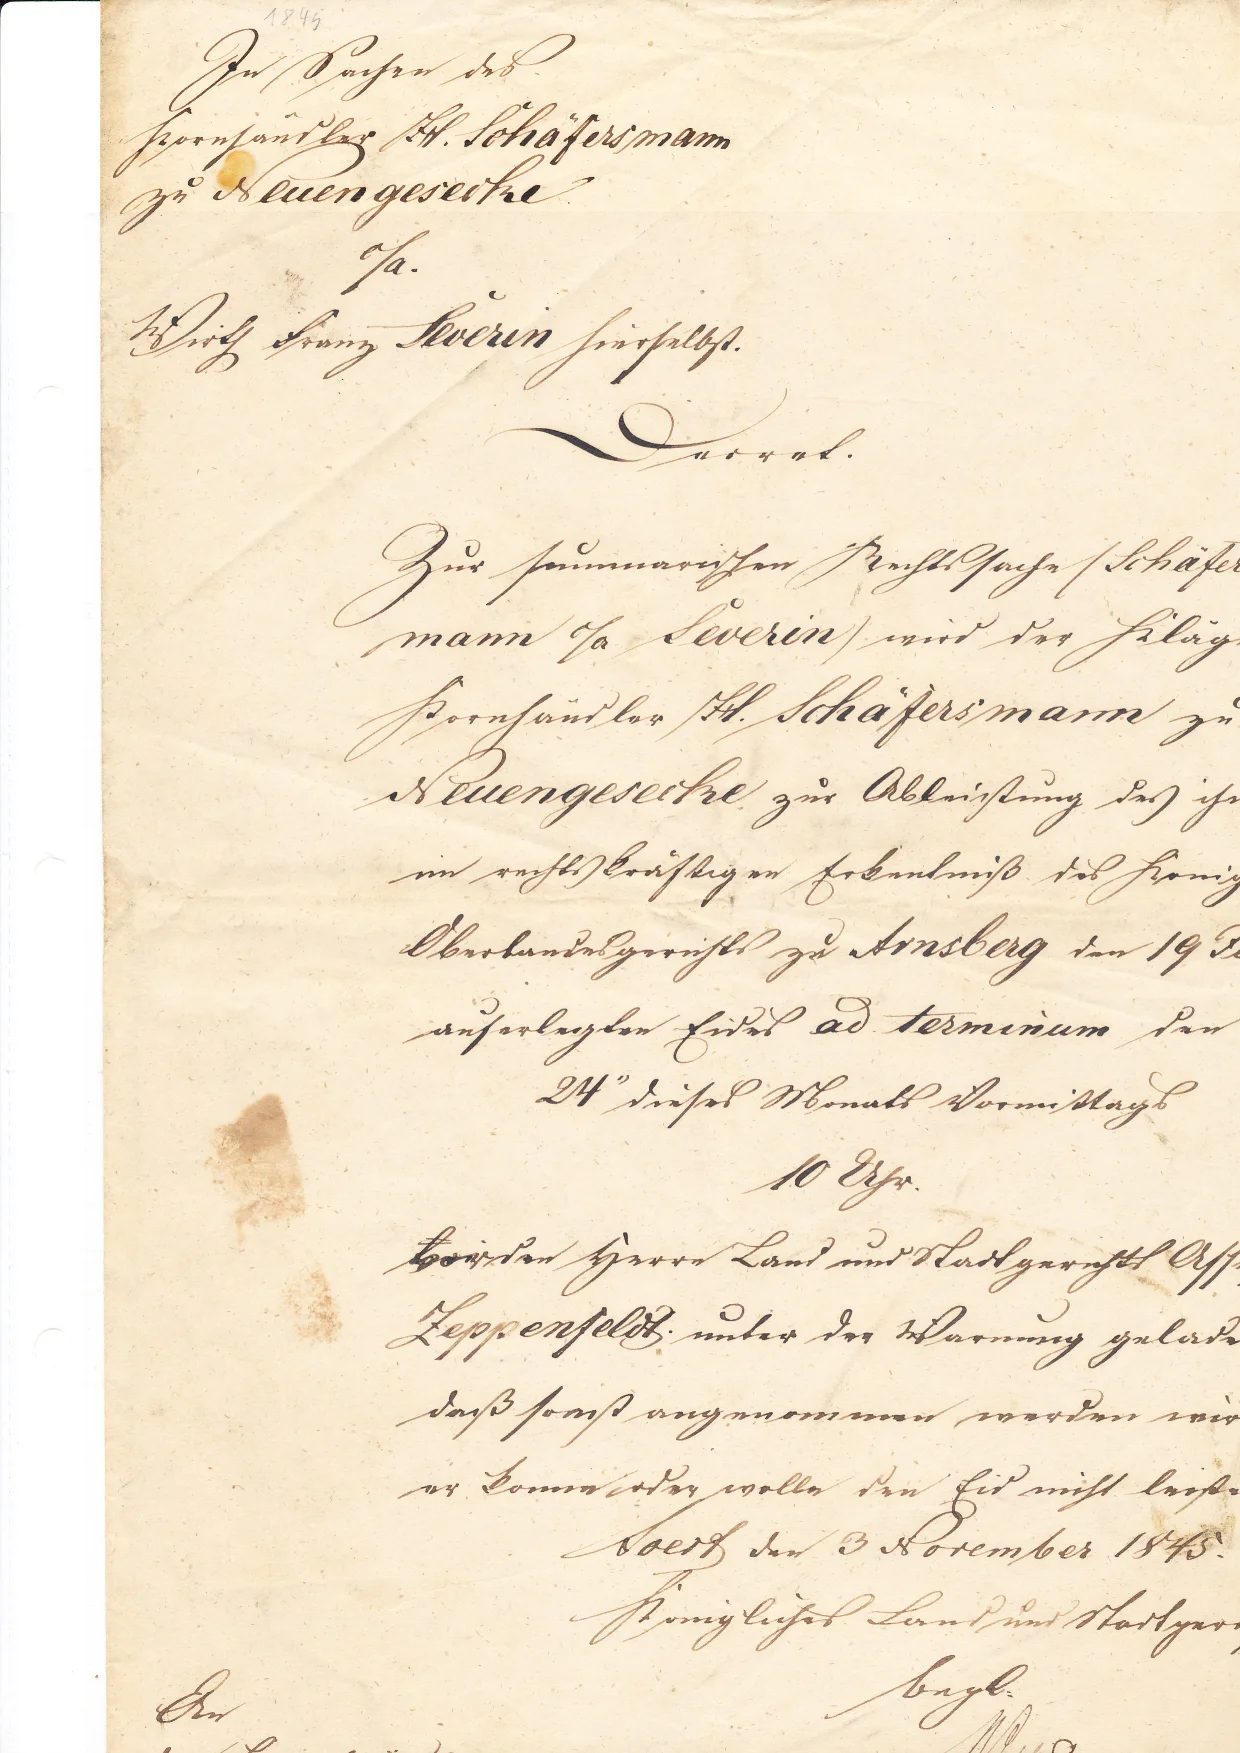 1845
In Sachen des
Kornhändler H. Schäfersmann
zu Neuengesecke
c/a.
Wirth Franz Severin hierselbst.
Decret.
Zur summarischen Rechtssache (Schäfer
mann c/a Severin) wird der Kläg
Kornhändler H. Schäfersmann zu
Neuengesecke zur Ableistung des ih
im rechtskräftigen Erkentniß des König
Oberlandesgerichts zu Arnsberg den 19 Fe
auferlegten Eides ad terminum den
24" dieses Monats Vormittags
10 Uhr.
vor den Herrn Land und Stadtgerichts Ass
Zeppenfeldt. unter der Warnung gelade
daß sonst angenommen werden wir
er könne oder wolle den Eid nicht leiste
Soest den 3 November 1845.
Königliches Land und Stadtger
begl:
An